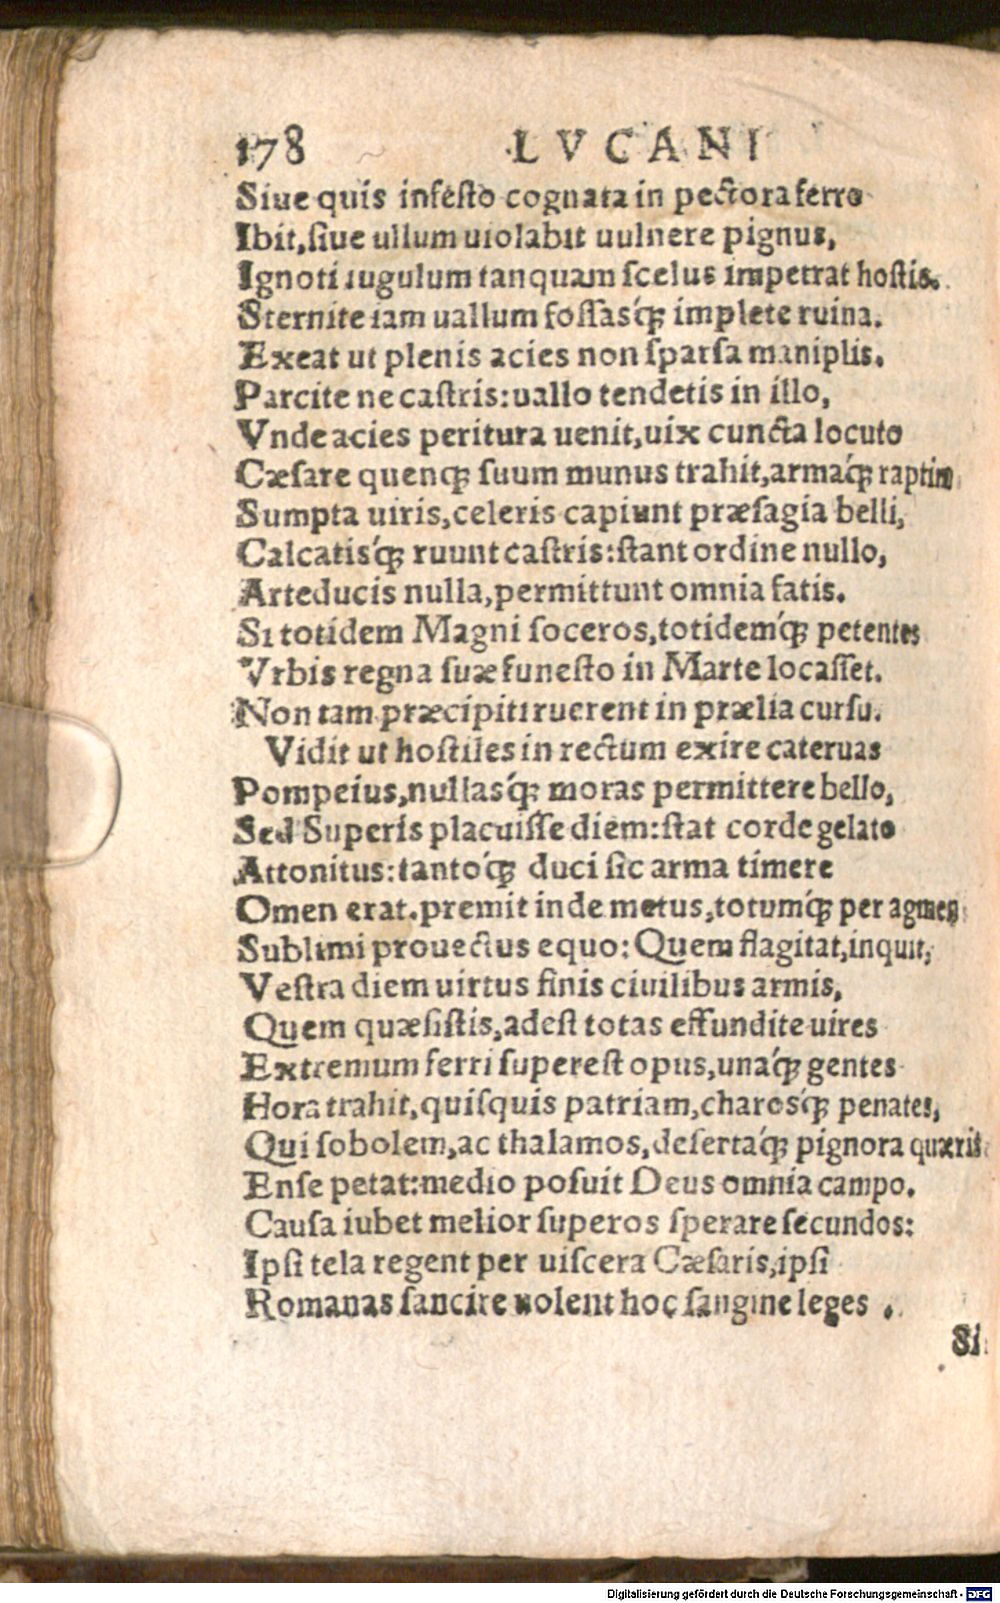 178 LVCANI
Siue quis infesto cognata in pectora ferro
Ibit, siue ullum uiolabit uulnere pignus,
Ignoti iugulum tanquam scelus impetrat hostis.
Sternite iam uallum fossasq́; implete ruina.
Exeat ut plenis acies non sparsa maniplis.
Parcite ne castris: uallo tendetis in illo,
Vnde acies peritura uenit, uix cuncta locuto
Cæsare quenq; suum munus trahit, armaq́; raptim
Sumpta uiris, celeris capiunt præsagia belli,
Calcatisq́; ruunt castris: stant ordine nullo,
Arte ducis nulla, permittunt omnia fatis.
Si totidem Magni soceros, totidemq́; petentes
Vrbis regna suæ funesto in Marte locasset.
Non tam præcipiti ruerent in prælia cursu.
Vidit ut hostiles in rectum exire cateruas
Pompeius, nullasq́; moras permittere bello,
Sed Superis placuisse diem: stat corde gelato
Attonitus: tantoq́; duci sic arma timere
Omen erat. premit inde metus, totumq́; per agmen
Sublimi prouectus equo: Quem flagitat, inquit,
Vestra diem uirtus finis ciuilibus armis,
Quem quæsistis, adest totas effundite uires
Extremum ferri superest opus, unaq́; gentes
Hora trahit, quisquis patriam, charosq́; penates,
Qui sobolem, ac thalamos, desertaq́; pignora quæris
Ense petat: medio posuit Deus omnia campo.
Causa iubet melior superos sperare secundos:
Ipsi tela regent per uiscera Cæsaris, ipsi
Romanas sancire uolent hoc sangine leges.
Si
Digitalisierung gefördert durch die Deutsche Forschungsgemeinschaft - DFG